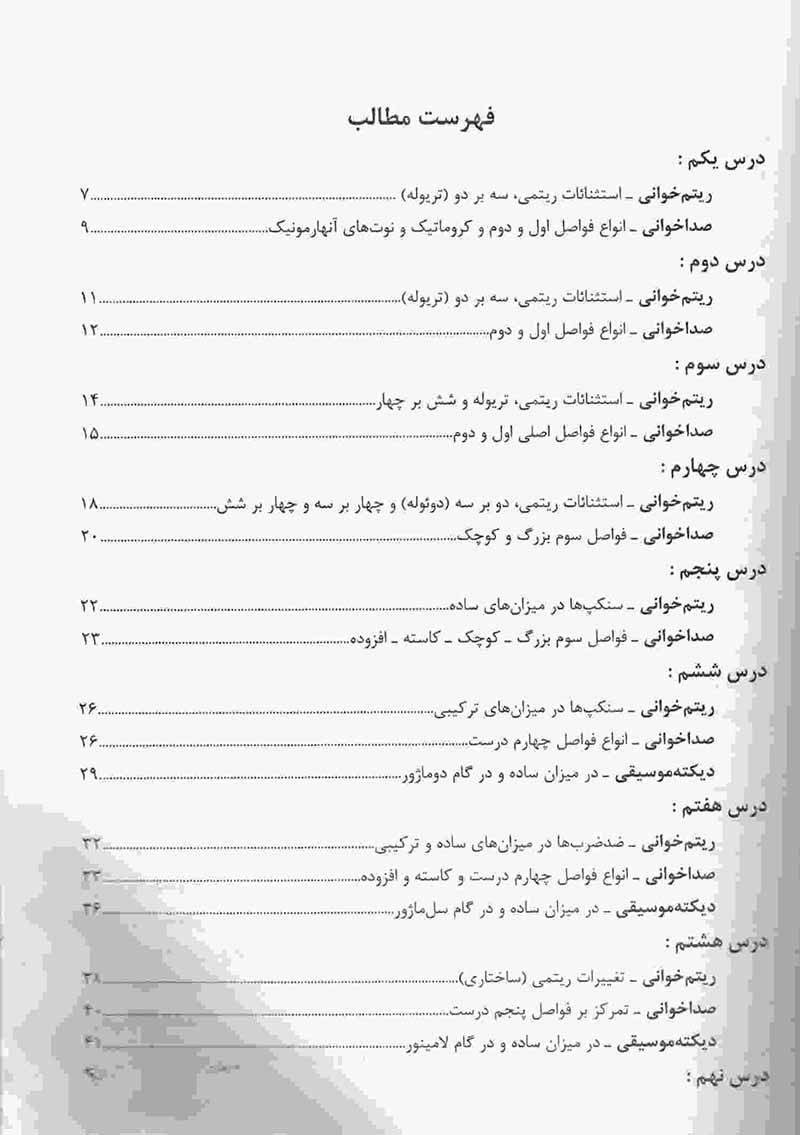 فهرست مطالب
درس یکم :
ریتم‌خوانی ـ استثنائات ریتمی، سه بر دو (تریوله) ........ ۷
صداخوانی ـ انواع فواصل اول و دوم و کروماتیک و نوت‌های آنهارمونیک........ ۹
درس دوم :
ریتم‌خوانی ـ استثنائات ریتمی، سه بر دو (تریوله)........ ۱۱
صداخوانی ـ انواع فواصل اول و دوم........ ۱۲
درس سوم :
ریتم‌خوانی ـ استثنائات ریتمی، تریوله و شش بر چهار........ ۱۴
صداخوانی ـ انواع فواصل اصلی اول و دوم........ ۱۵
درس چهارم :
ریتم‌خوانی ـ استثنائات ریتمی، دو بر سه (دوئوله) و چهار بر سه و چهار بر شش........ ۱۸
صداخوانی ـ فواصل سوم بزرگ و کوچک........ ۲۰
درس پنجم :
ریتم‌خوانی ـ سنکپ‌ها در میزان‌های ساده........ ۲۲
صداخوانی ـ فواصل سوم بزرگ ـ کوچک ـ کاسته ـ افزوده........ ۲۳
درس ششم :
ریتم‌خوانی ـ سنکپ‌ها در میزان‌های ترکیبی........ ۲۶
صداخوانی ـ انواع فواصل چهارم درست........ ۲۶
دیکته‌موسیقی ـ در میزان ساده و در گام دوماژور........ ۲۹
درس هفتم :
ریتم‌خوانی ـ ضدضرب‌ها در میزان‌های ساده و ترکیبی........ ۳۲
صداخوانی ـ انواع فواصل چهارم درست و کاسته و افزوده........ ۳۳
دیکته‌موسیقی ـ در میزان ساده و در گام سل‌ماژور........ ۳۶
درس هشتم :
ریتم‌خوانی ـ تغییرات ریتمی (ساختاری)........ ۳۸
صداخوانی ـ تمرکز بر فواصل پنجم درست........ ۴۰
دیکته‌موسیقی ـ در میزان ساده و در گام لامینور........
درس نهم :